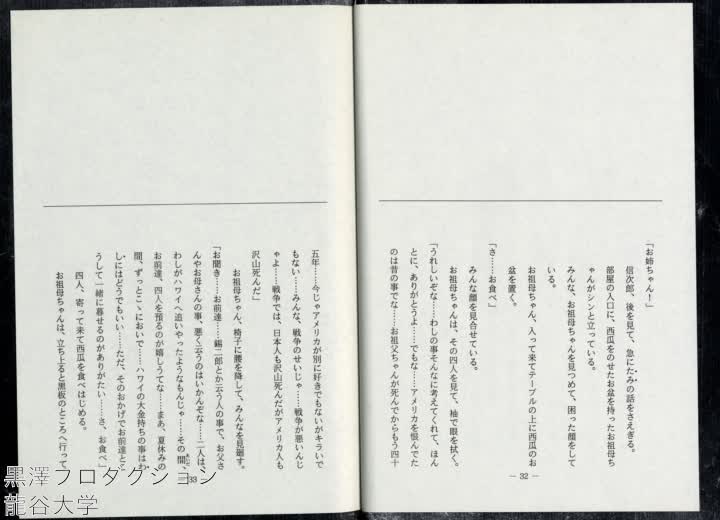 「お姉ちゃん！」
信次郎、後を見て、急にたみの話をさえぎる。
部屋の入口に、西瓜をのせたお盆を持ったお祖母ち
ゃんがシンと立っている。
みんな、お祖母ちゃんを見つめて、困った顔をして
いる。
お祖母ちゃん、入って来てテーブルの上に西瓜のお
盆を置く。
「さ……お食べ」
みんな顔を見合せている。
お祖母ちゃんは、その四人を見て、袖で眼を拭く。
「うれしいぞな……わしの事そんなに考えてくれて、ほん
とに、ありがとうよ……でもな……アメリカを恨んでた
のは昔の事でな……お祖父ちゃんが死んでからもう四十
― 32 ―
五年……今じゃアメリカが別に好きでもないがキライで
もない……みんな、戦争のせいじゃ……戦争が悪いんじ
ゃよ……戦争では、日本人も沢山死んだがアメリカ人も
沢山死んだ」
お祖母ちゃん、椅子に腰を降して、みんなを見廻す。
「お聞き……お前達……錫二郎とか云う人の事で、お父さ
んやお母さんの事、悪く云うのはいかんぞな……二人は、
わしがハワイへ追いやったようなもんじゃ……その間、
お前達、四人を預るのが嬉しうてな……まあ、夏休みの
間、ずっとこゝにおいで……ハワイの大金持ちの事はわ
しにはどうでもいい……ただ、そのおかげでお前達とこ
うして一緒に暮せるのがありがたい……さ、お食べ」
四人、寄って来て西瓜を食べはじめる。
お祖母ちゃんは、立ち上ると黒板のところへ行って
33
黒澤プロダクション
龍谷大学